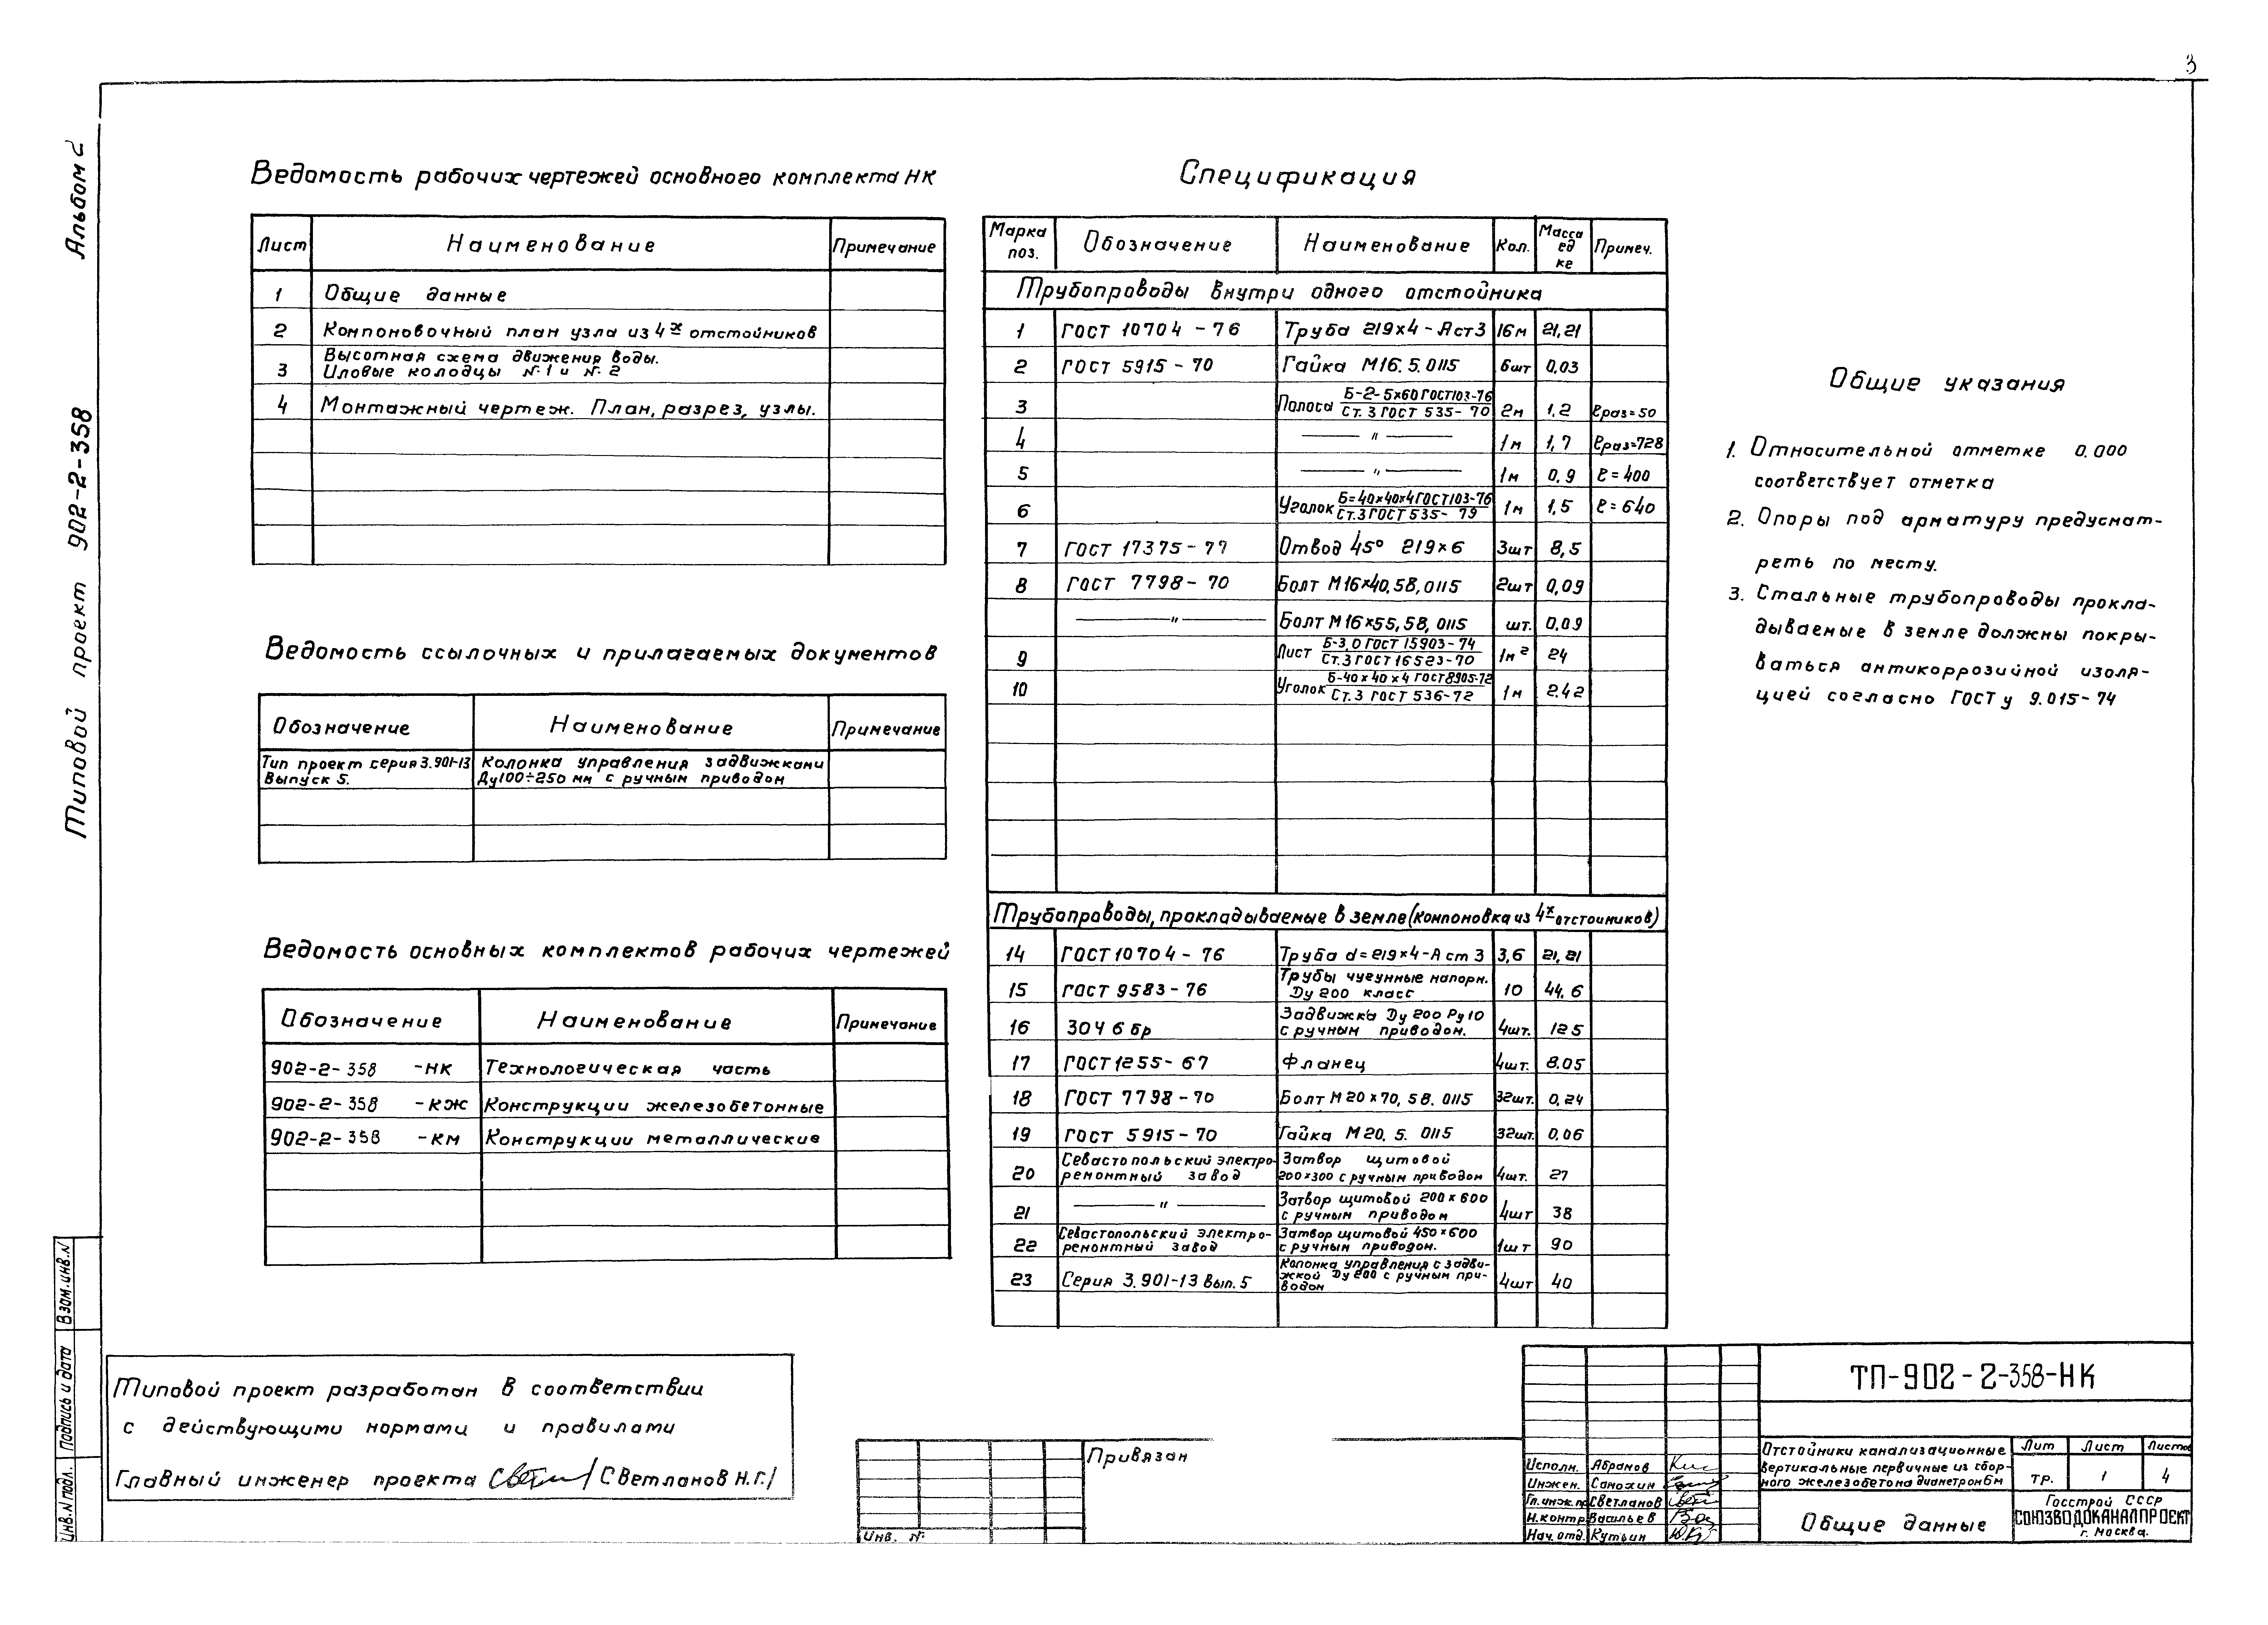 3
Альбом 2
Типовой проект 902-2-358
Ведомость рабочих чертежей основного комплекта НК
Лист Наименование Примечание
1 Общие данные
2 Компоновочный план узла из 4х отстойников
3 Высотная схема движения воды.
Иловые колодцы №1 и №2
4 Монтажный чертеж. План, разрез, узлы.
Ведомость ссылочных и прилагаемых документов
Обозначение Наименование Примечание
Тип проект серия 3.901-13 Колонка управления задвижками
Выпуск 5. Ду100÷250 мм с ручным приводом
Ведомость основных комплектов рабочих чертежей
Обозначение Наименование Примечание
902-2-358 -НК Технологическая часть
902-2-358 -КЖ Конструкции железобетонные
902-2-358 -КМ Конструкции металлические
Спецификация
Марка поз. Обозначение Наименование Кол. Масса ед кг Примеч.
Трубопроводы внутри одного отстойника
1 ГОСТ 10704-76 Труба 219×4-Аст3 16м 21,21
2 ГОСТ 5915-70 Гайка М16.5.0115 6шт 0,03
3 Полоса Б-2-5×60 ГОСТ103-76 2м 1,2 ℓраз=50
Ст.3 ГОСТ 535-70
4 —"— 1м 1,7 ℓраз=728
5 —"— 1м 0,9 ℓ=400
6 Уголок Б=40×40×4 ГОСТ103-76 1м 1,5 ℓ=640
Ст.3 ГОСТ 535-79
7 ГОСТ 17375-77 Отвод 45° 219×6 3шт 8,5
8 ГОСТ 7798-70 Болт М16×40,58,0115 2шт 0,09
—"— Болт М16×55,58,0115 шт. 0,09
9 Лист Б-3,0 ГОСТ 15903-74 1м² 24
Ст.3 ГОСТ 16523-70
10 Уголок Б-40×40×4 ГОСТ8905-72 1м 2.42
Ст.3 ГОСТ 536-72
Трубопроводы, прокладываемые в земле (компоновка из 4х отстойников)
14 ГОСТ 10704-76 Труба d=219×4-А ст 3 3,6 21,21
15 ГОСТ 9583-76 Трубы чугунные напорн. 10 44.6
Ду 200 класс
16 30Ч 6 бр Задвижка Ду 200 Ру10 4шт. 125
с ручным приводом.
17 ГОСТ 1255-67 Фланец 4шт. 8.05
18 ГОСТ 7798-70 Болт М20×70,58.0115 32шт. 0,24
19 ГОСТ 5915-70 Гайка М20.5.0115 32шт. 0,06
20 Севастопольский электро- Затвор щитовой 4шт. 27
ремонтный завод 200×300 с ручным приводом
21 —"— Затвор щитовой 200×600 4шт 38
с ручным приводом
22 Севастопольский электро- Затвор щитовой 450×600 1шт 90
ремонтный завод с ручным приводом.
23 Серия 3.901-13 Вып. 5 Колонка управления с задви- 4шт 40
жкой Ду200 с ручным при-
водом
Общие указания
1. Относительной отметке 0.000
соответствует отметка
2. Опоры под арматуру предусмат-
реть по месту.
3. Стальные трубопроводы прокла-
дываемые в земле должны покры-
ваться антикоррозийной изоля-
цией согласно ГОСТ у 9.015-74
Типовой проект разработан в соответствии
с действующими нормами и правилами
Главный инженер проекта /Светланов Н.Г./
Взам.инв.N
Подпись и дата
Инв.N подл.
Привязан
Инв. №
Исполн. Абрамов
Инжен. Самохин
Гл.инж.пр Светланов
Н.контр. Васильев
Нач.отд. Кутьин
ТП-902-2-358-НК
Отстойники канализационные
вертикальные первичные из сбор-
ного железобетона диаметром6м
Лит Лист Листов
тр. 1 4
Общие данные
Госстрой СССР
СОЮЗВОДОКАНАЛПРОЕКТ
г. Москва.